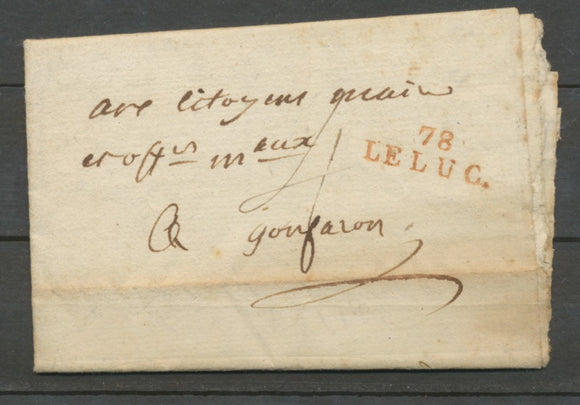 aux citoyens maire
et offrs maux
78
LELUC.
A gonfaron